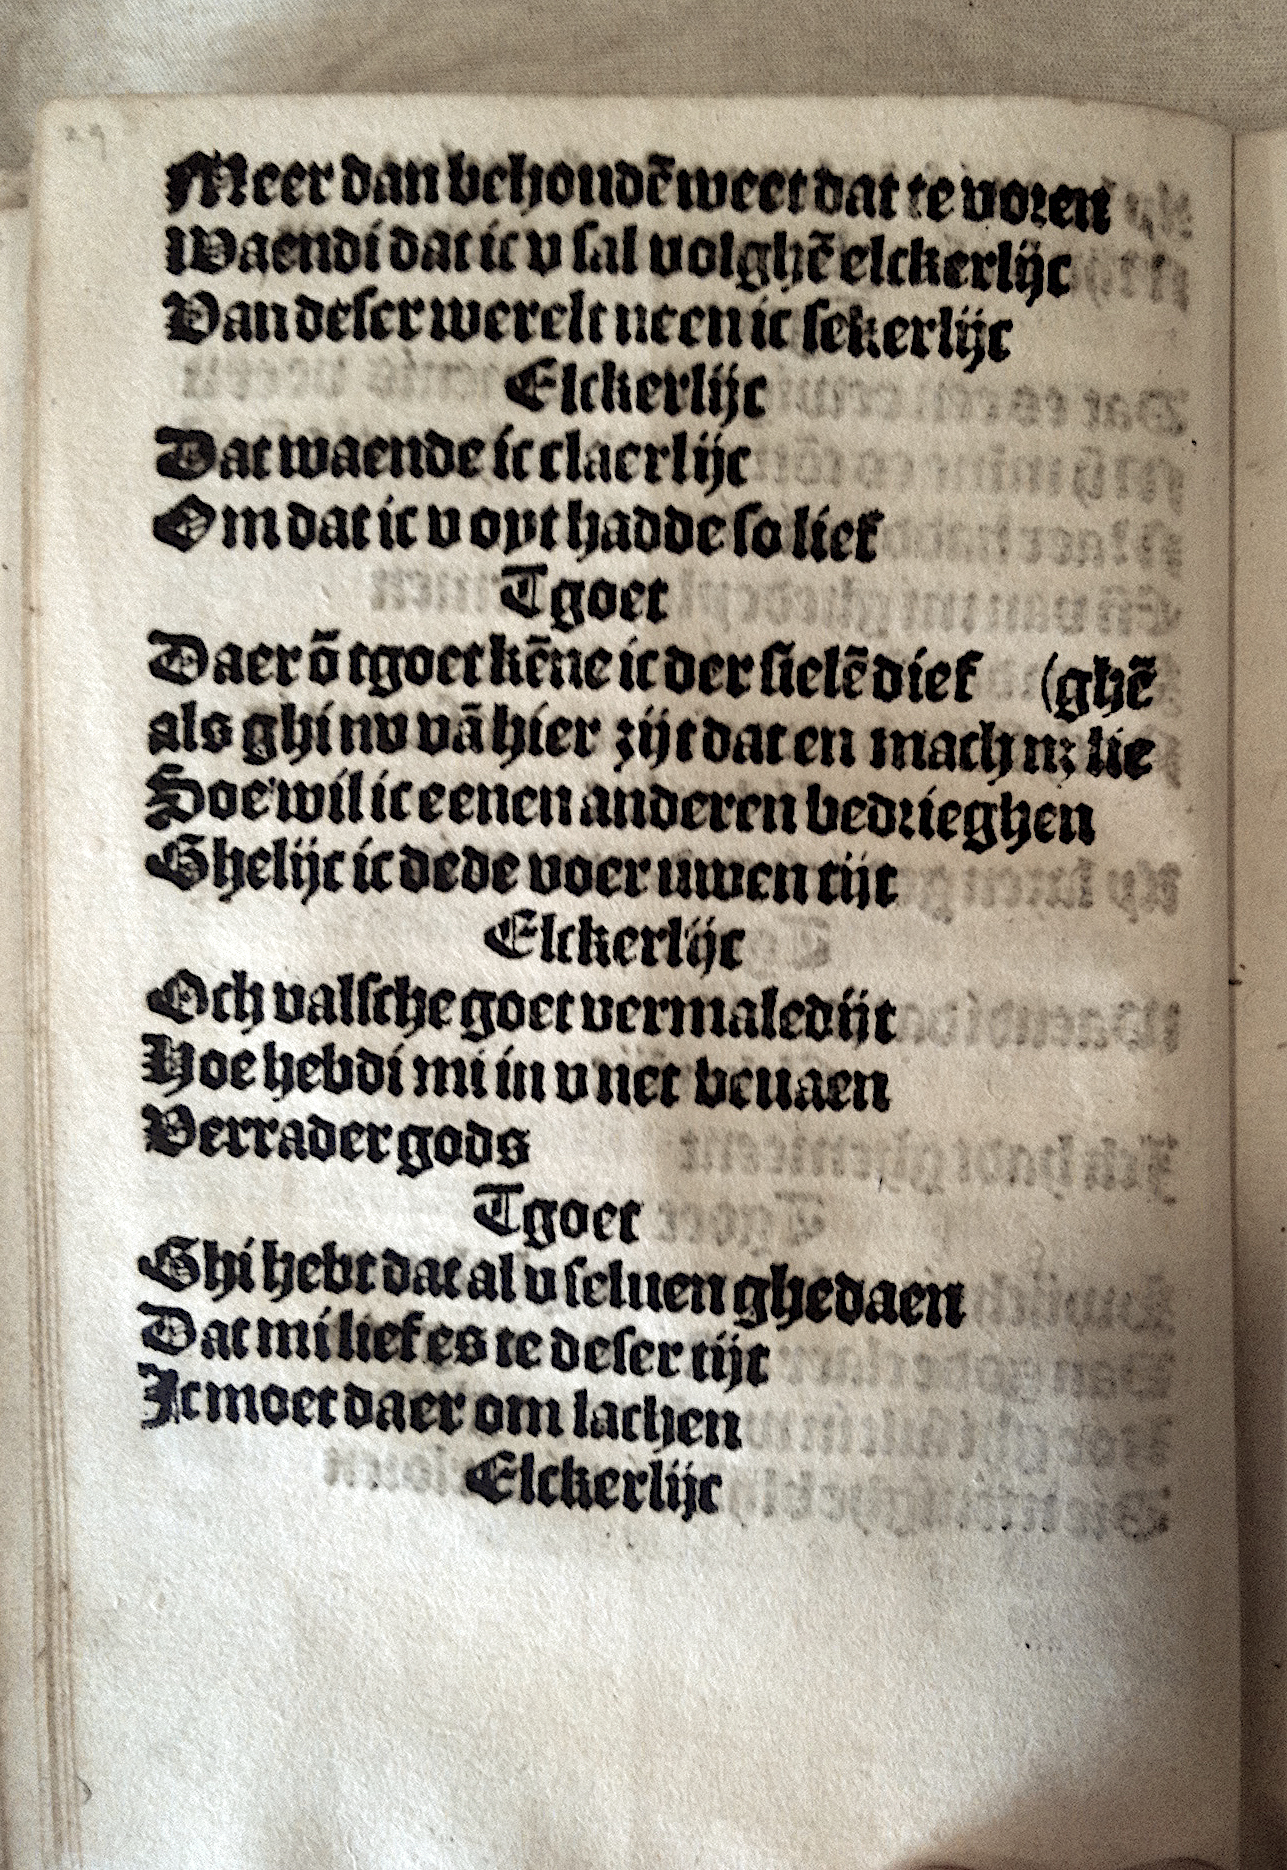 29
Meer dan behoudē weet dat te voren
Waendi dat ic v sal volghē elckerlijc
Van deser werelt neen ic sekerlijc
Elckerlijc
Dat waende ic claerlijc
Om dat ic v oyt hadde so lief
Tgoet
Daer ō tgoet kēne ic der sielē dief (ghē
als ghi nv vā hier zijt dat en mach nz lie
Hoe wil ic eenen anderen bedrieghen
Ghelijc ic dede voer uwen tijt
Elckerlijc
Och valsche goet vermaledijt
Hoe hebdi mi in v net beuaen
Verrader gods
Tgoet
Ghi hebt dat al v seluen ghedaen
Dat mi lief es te deser tijt
Ic moet daer om lachen
Elckerlijc